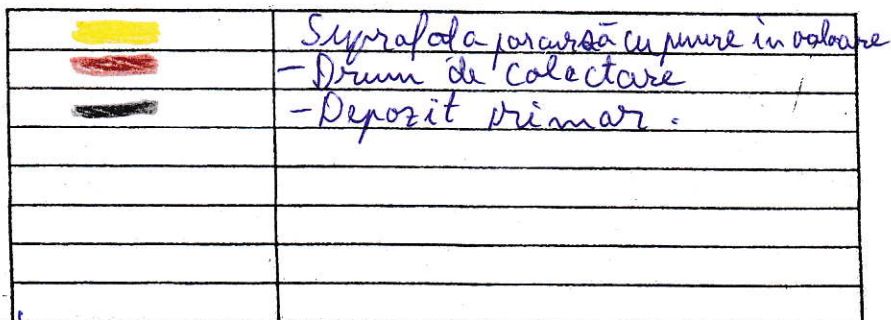 Suprafața parcursă cu punere în valoare
- Drum de colectare
- Depozit primar.